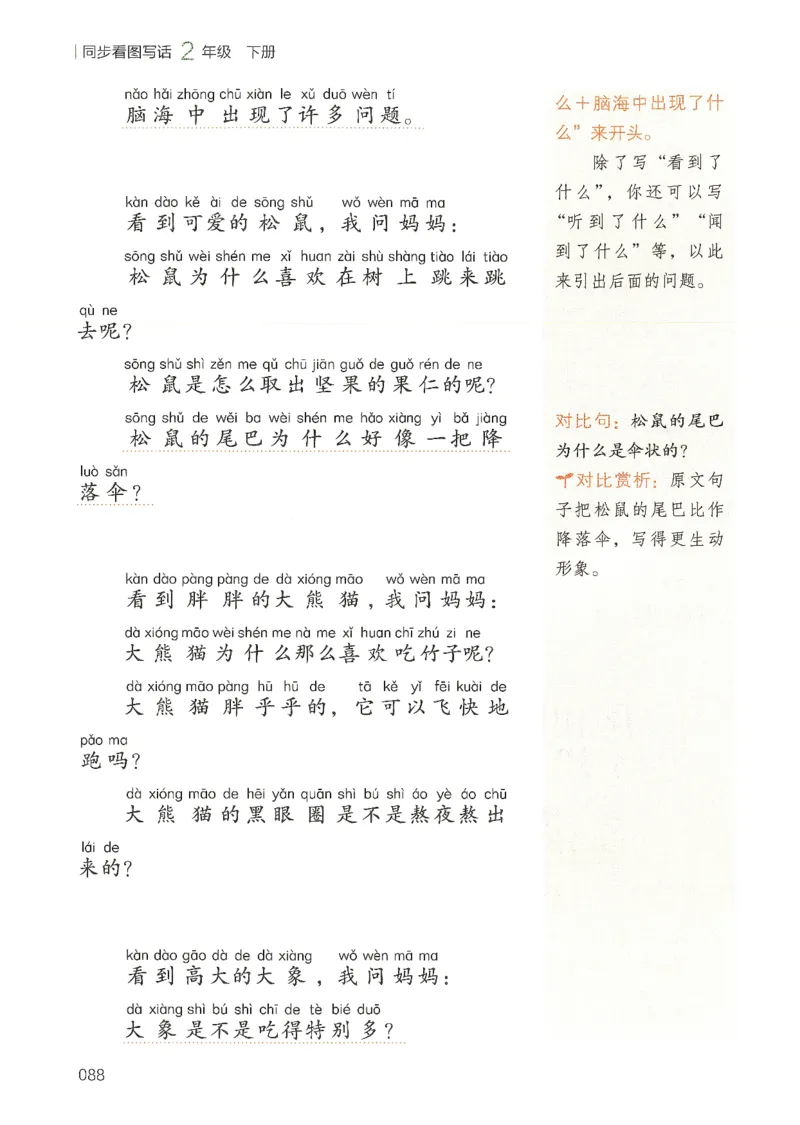 同步看图写话 2 年级 下册
nǎo hǎi zhōng chū xiàn le xǔ duō wèn tí
脑海中出现了许多问题。
kàn dào kě ài de sōng shǔ wǒ wèn mā ma
看到可爱的松鼠，我问妈妈：
sōng shǔ wèi shén me xǐ huan zài shù shàng tiào lái tiào
松鼠为什么喜欢在树上跳来跳
qù ne
去呢？
sōng shǔ shì zěn me qǔ chū jiān guǒ de guǒ rén de ne
松鼠是怎么取出坚果的果仁的呢？
sōng shǔ de wěi ba wèi shén me hǎo xiàng yì bǎ jiàng
松鼠的尾巴为什么好像一把降
luò sǎn
落伞？
kàn dào pàng pàng de dà xióng māo wǒ wèn mā ma
看到胖胖的大熊猫，我问妈妈：
dà xióng māo wèi shén me nà me xǐ huan chī zhú zi ne
大熊猫为什么那么喜欢吃竹子呢？
dà xióng māo pàng hū hū de tā kě yǐ fēi kuài de
大熊猫胖乎乎的，它可以飞快地
pǎo ma
跑吗？
dà xióng māo de hēi yǎn quān shì bú shì áo yè áo chū
大熊猫的黑眼圈是不是熬夜熬出
lái de
来的？
kàn dào gāo dà de dà xiàng wǒ wèn mā ma
看到高大的大象，我问妈妈：
dà xiàng shì bú shì chī de tè bié duō
大象是不是吃得特别多？
么＋脑海中出现了什
么”来开头。
除了写“看到了
什么”，你还可以写
“听到了什么”“闻
到了什么”等，以此
来引出后面的问题。
对比句：松鼠的尾巴
为什么是伞状的？
对比赏析：原文句
子把松鼠的尾巴比作
降落伞，写得更生动
形象。
088